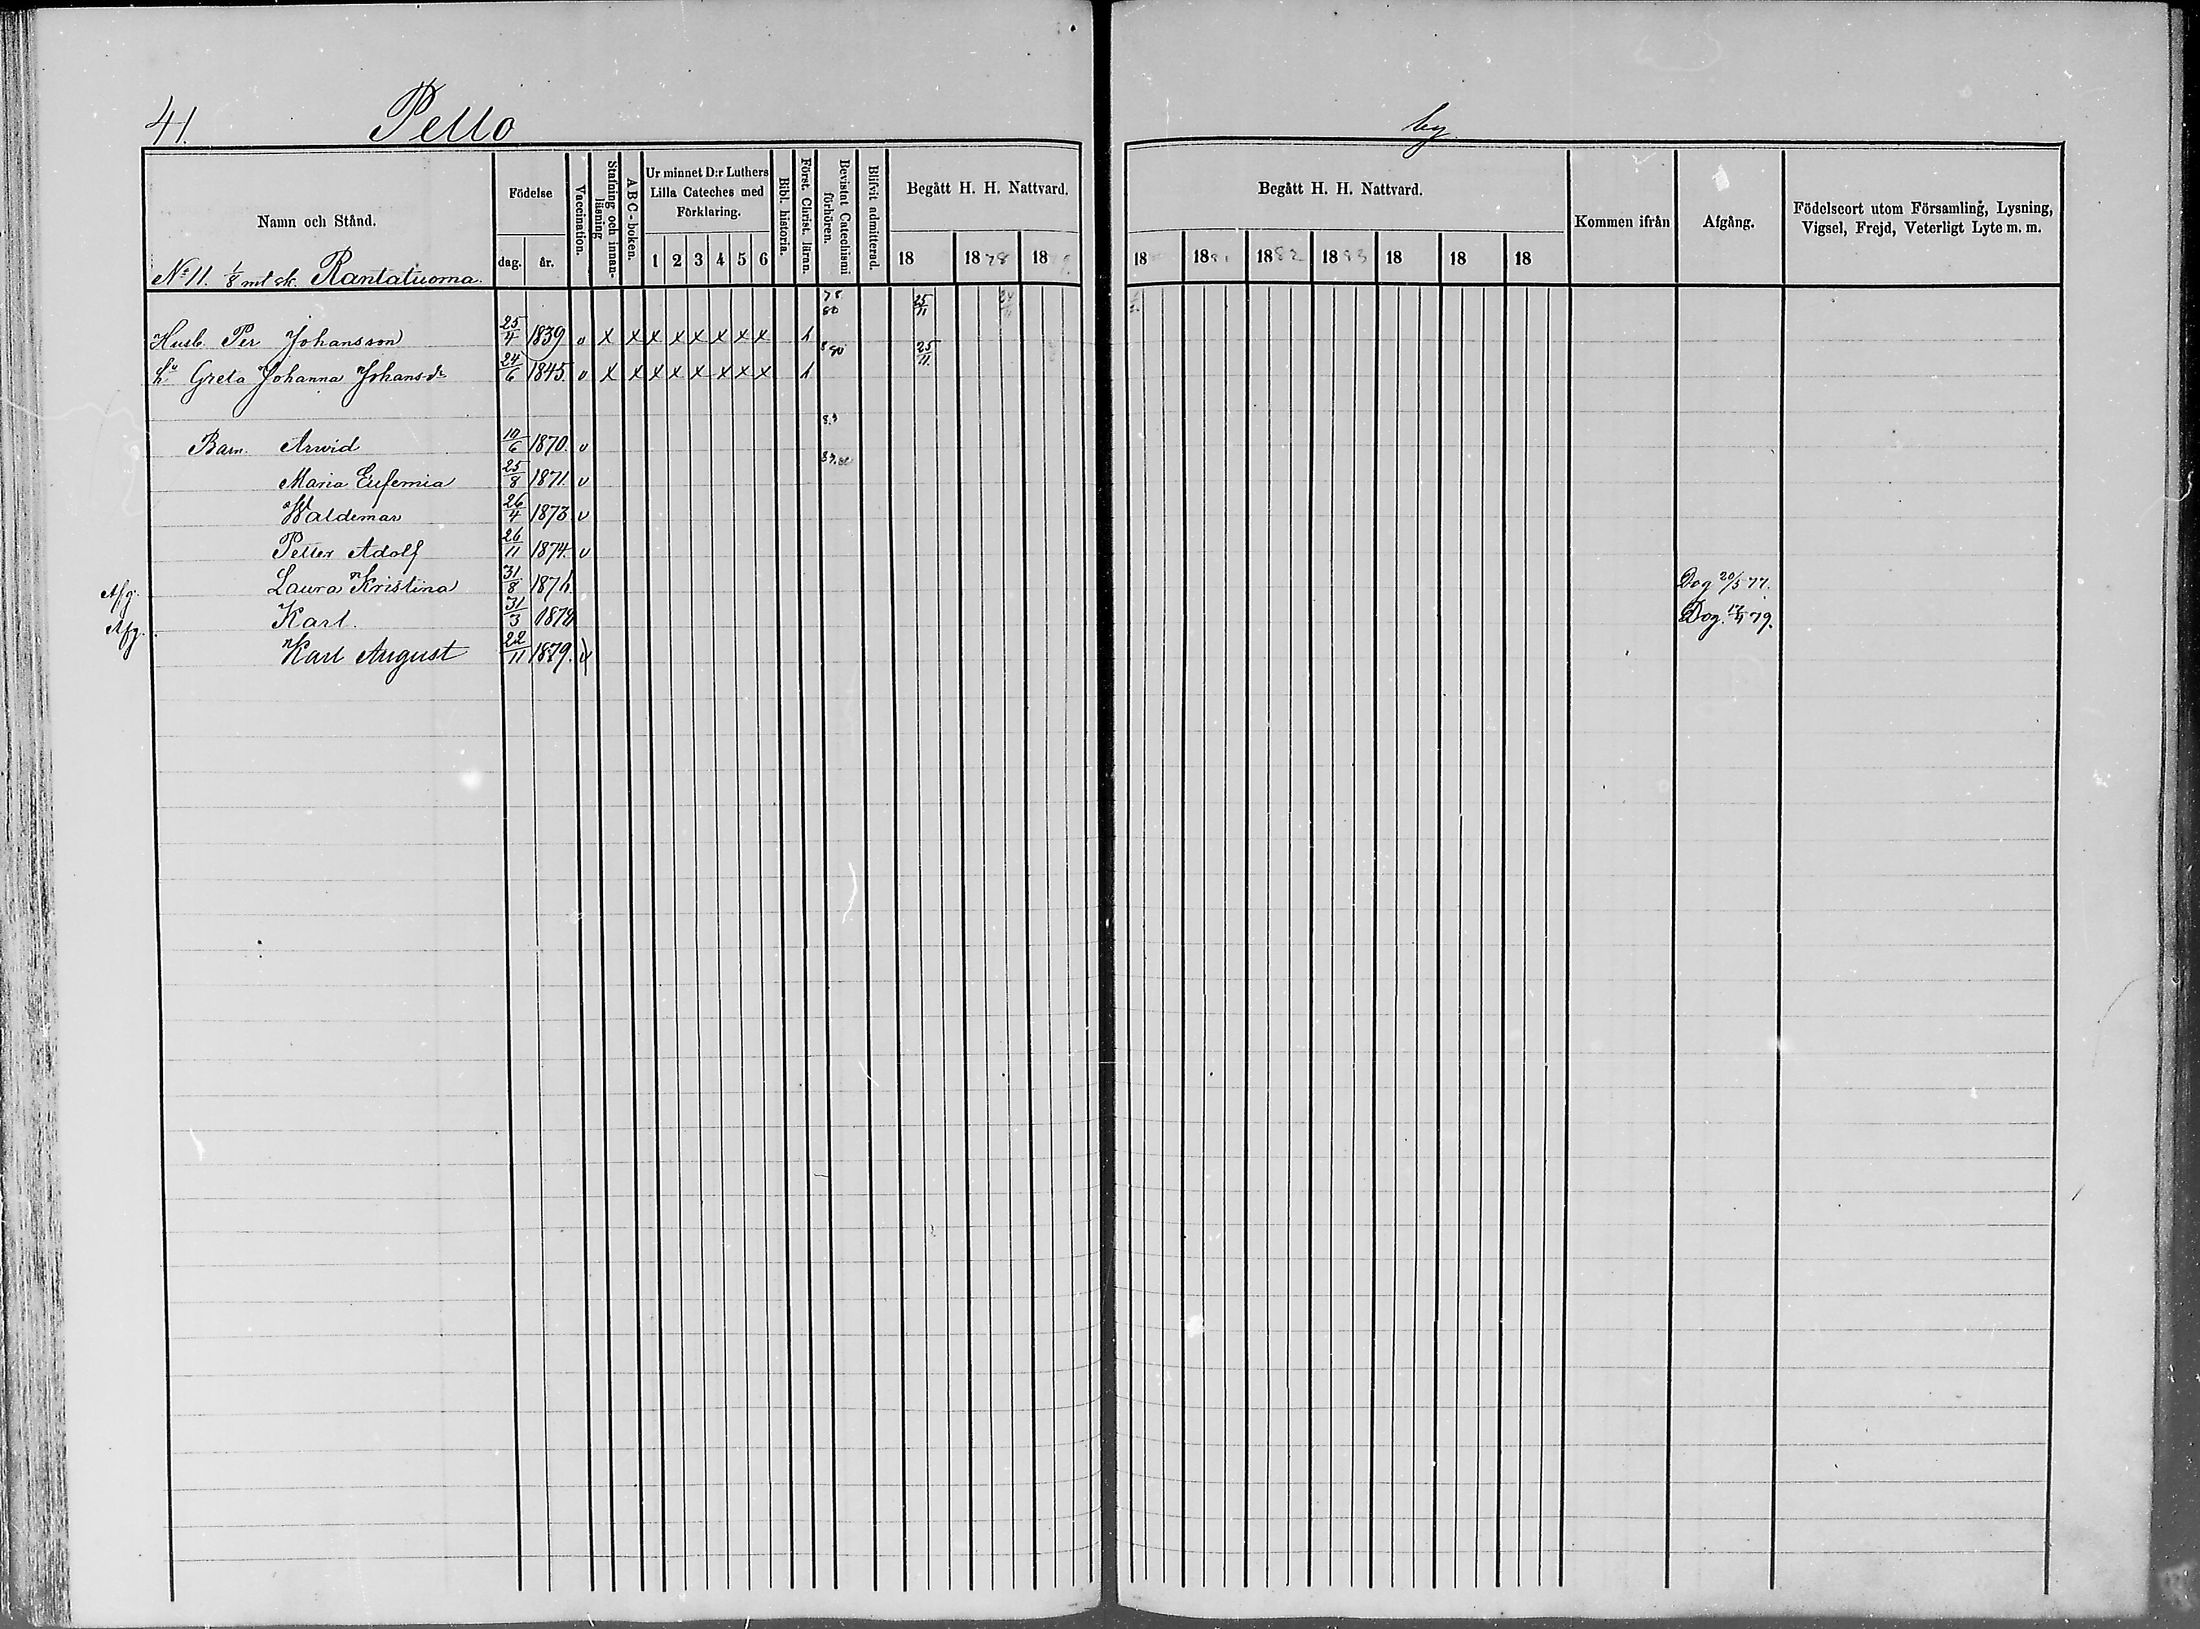 41. Pello by
Namn och Stånd.
Födelse
dag. år.
Vaccination.
Stafning och innan-läsning
ABC-boken.
Ur minnet D:r Luthers Lilla Cateches med Förklaring.
1 2 3 4 5 6
Bibl. historia.
Först. Christ. läran.
Bevistat Catechismi förhören.
Blifvit admitterad.
Begått H. H. Nattvard.
18 1878 18
Begått H. H. Nattvard.
18 188 1882 1883 18 18 18
Kommen ifrån
Afgång.
Födelseort utom Församling, Lysning, Vigsel, Frejd, Veterligt Lyte m. m.
No 11. 1/8 mtsk. Rantatuoma.
Husb. Per Johansson 25/4 1839 v x x x x x x x x 78 80 25/11
h:u Greta Johanna Johansdr 24/6 1845. v x x x x x x x x 80 25/11
Barn Arvid 10/6 1870. v 83
Maria Eufemia 25/8 1871. v
Waldemar 26/4 1873 v
Petter Adolf 26/11 1874. v
Afg. Laura Kristina 31/8 1876 Dog 20/5 77.
Afg. Karl. 31/3 1878 Dog. 79.
Karl August 22/11 1879. v